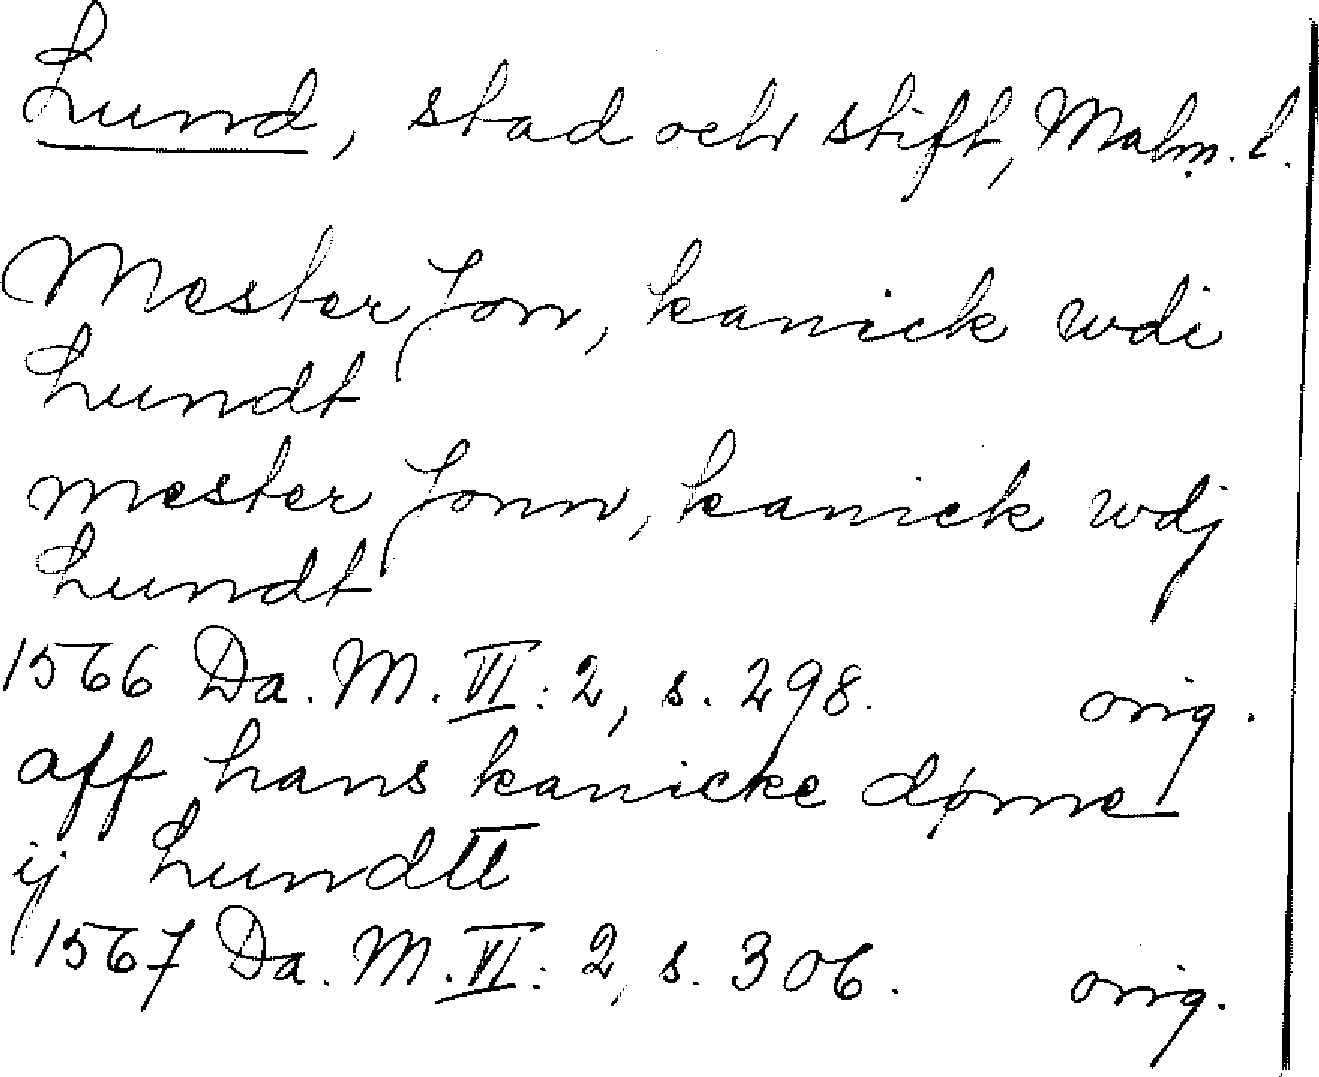 Lund, stad och stift, Malm. l.
Mester Jon, kanick wdi
Lundt
mester Jonn, kanick wdj
Lundt
1566 Da. M. VI: 2, s. 298. orig.
aff hans kanicke dømme
ij Lundtt
1567 Da. M. VI: 2, s. 306. orig.